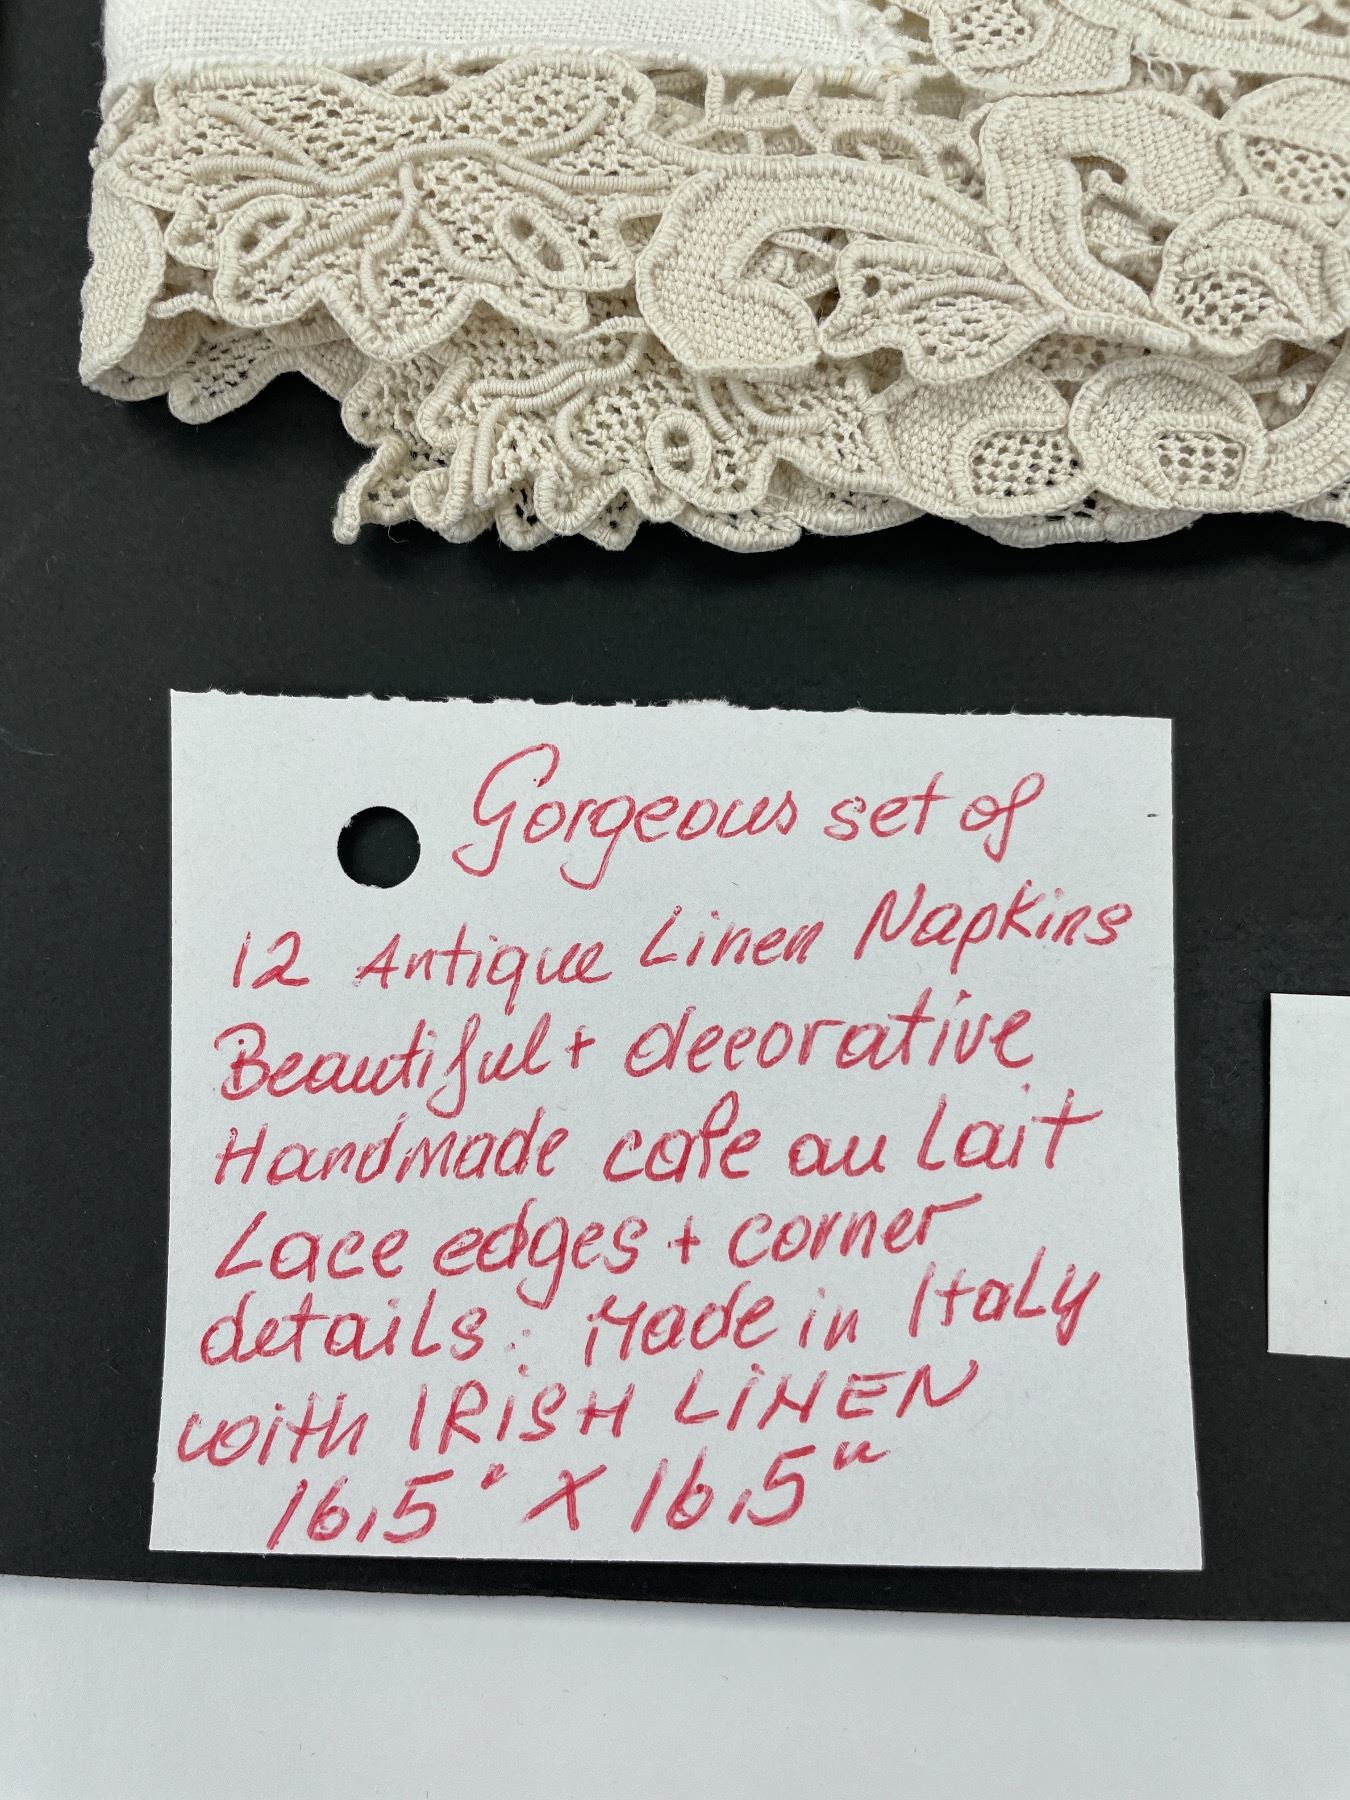 Gorgeous set of
12 Antique Linen Napkins
Beautiful + decorative
Handmade cafe au Lait
Lace edges + corner
details. Made in Italy
with IRiSH LiNEN
16,5" X 16,5"